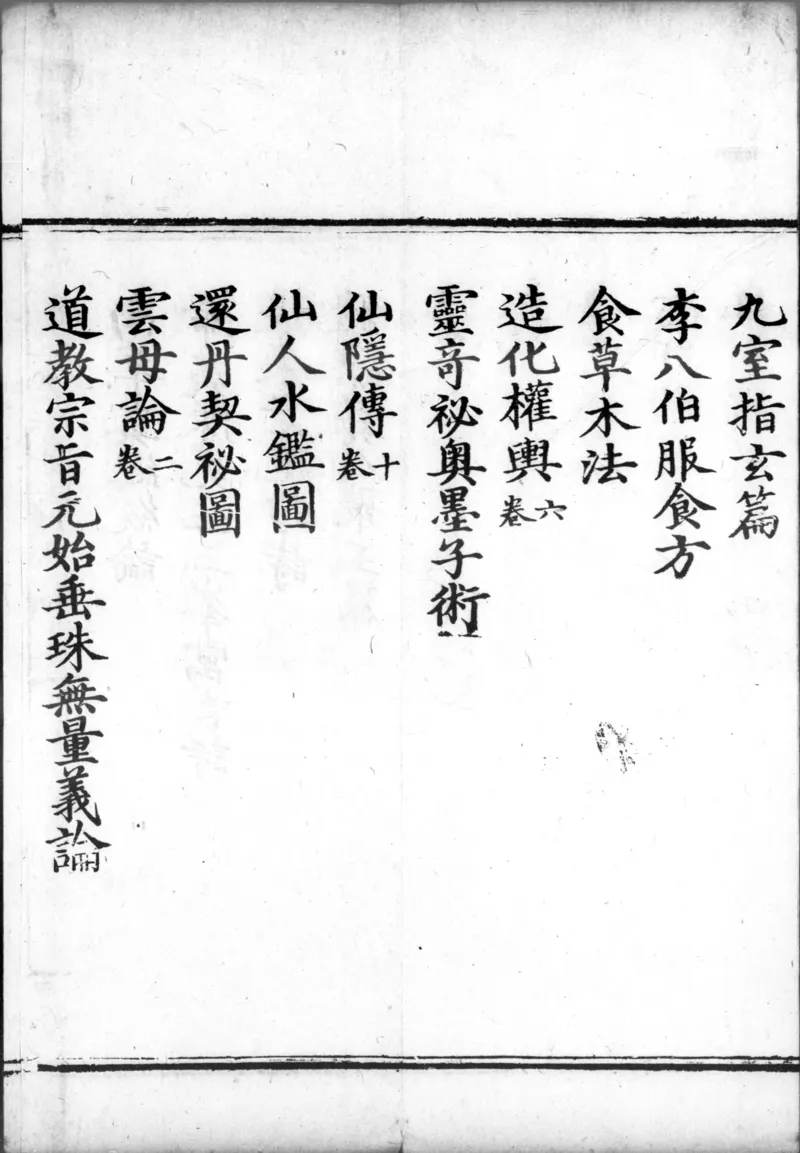 九室指玄篇
李八伯服食方
食草木法
造化權輿六卷
靈奇祕奧墨子術
仙隱傳十卷
仙人水鑑圖
還丹契祕圖
雲母論二卷
道教宗旨元始垂珠無量義論